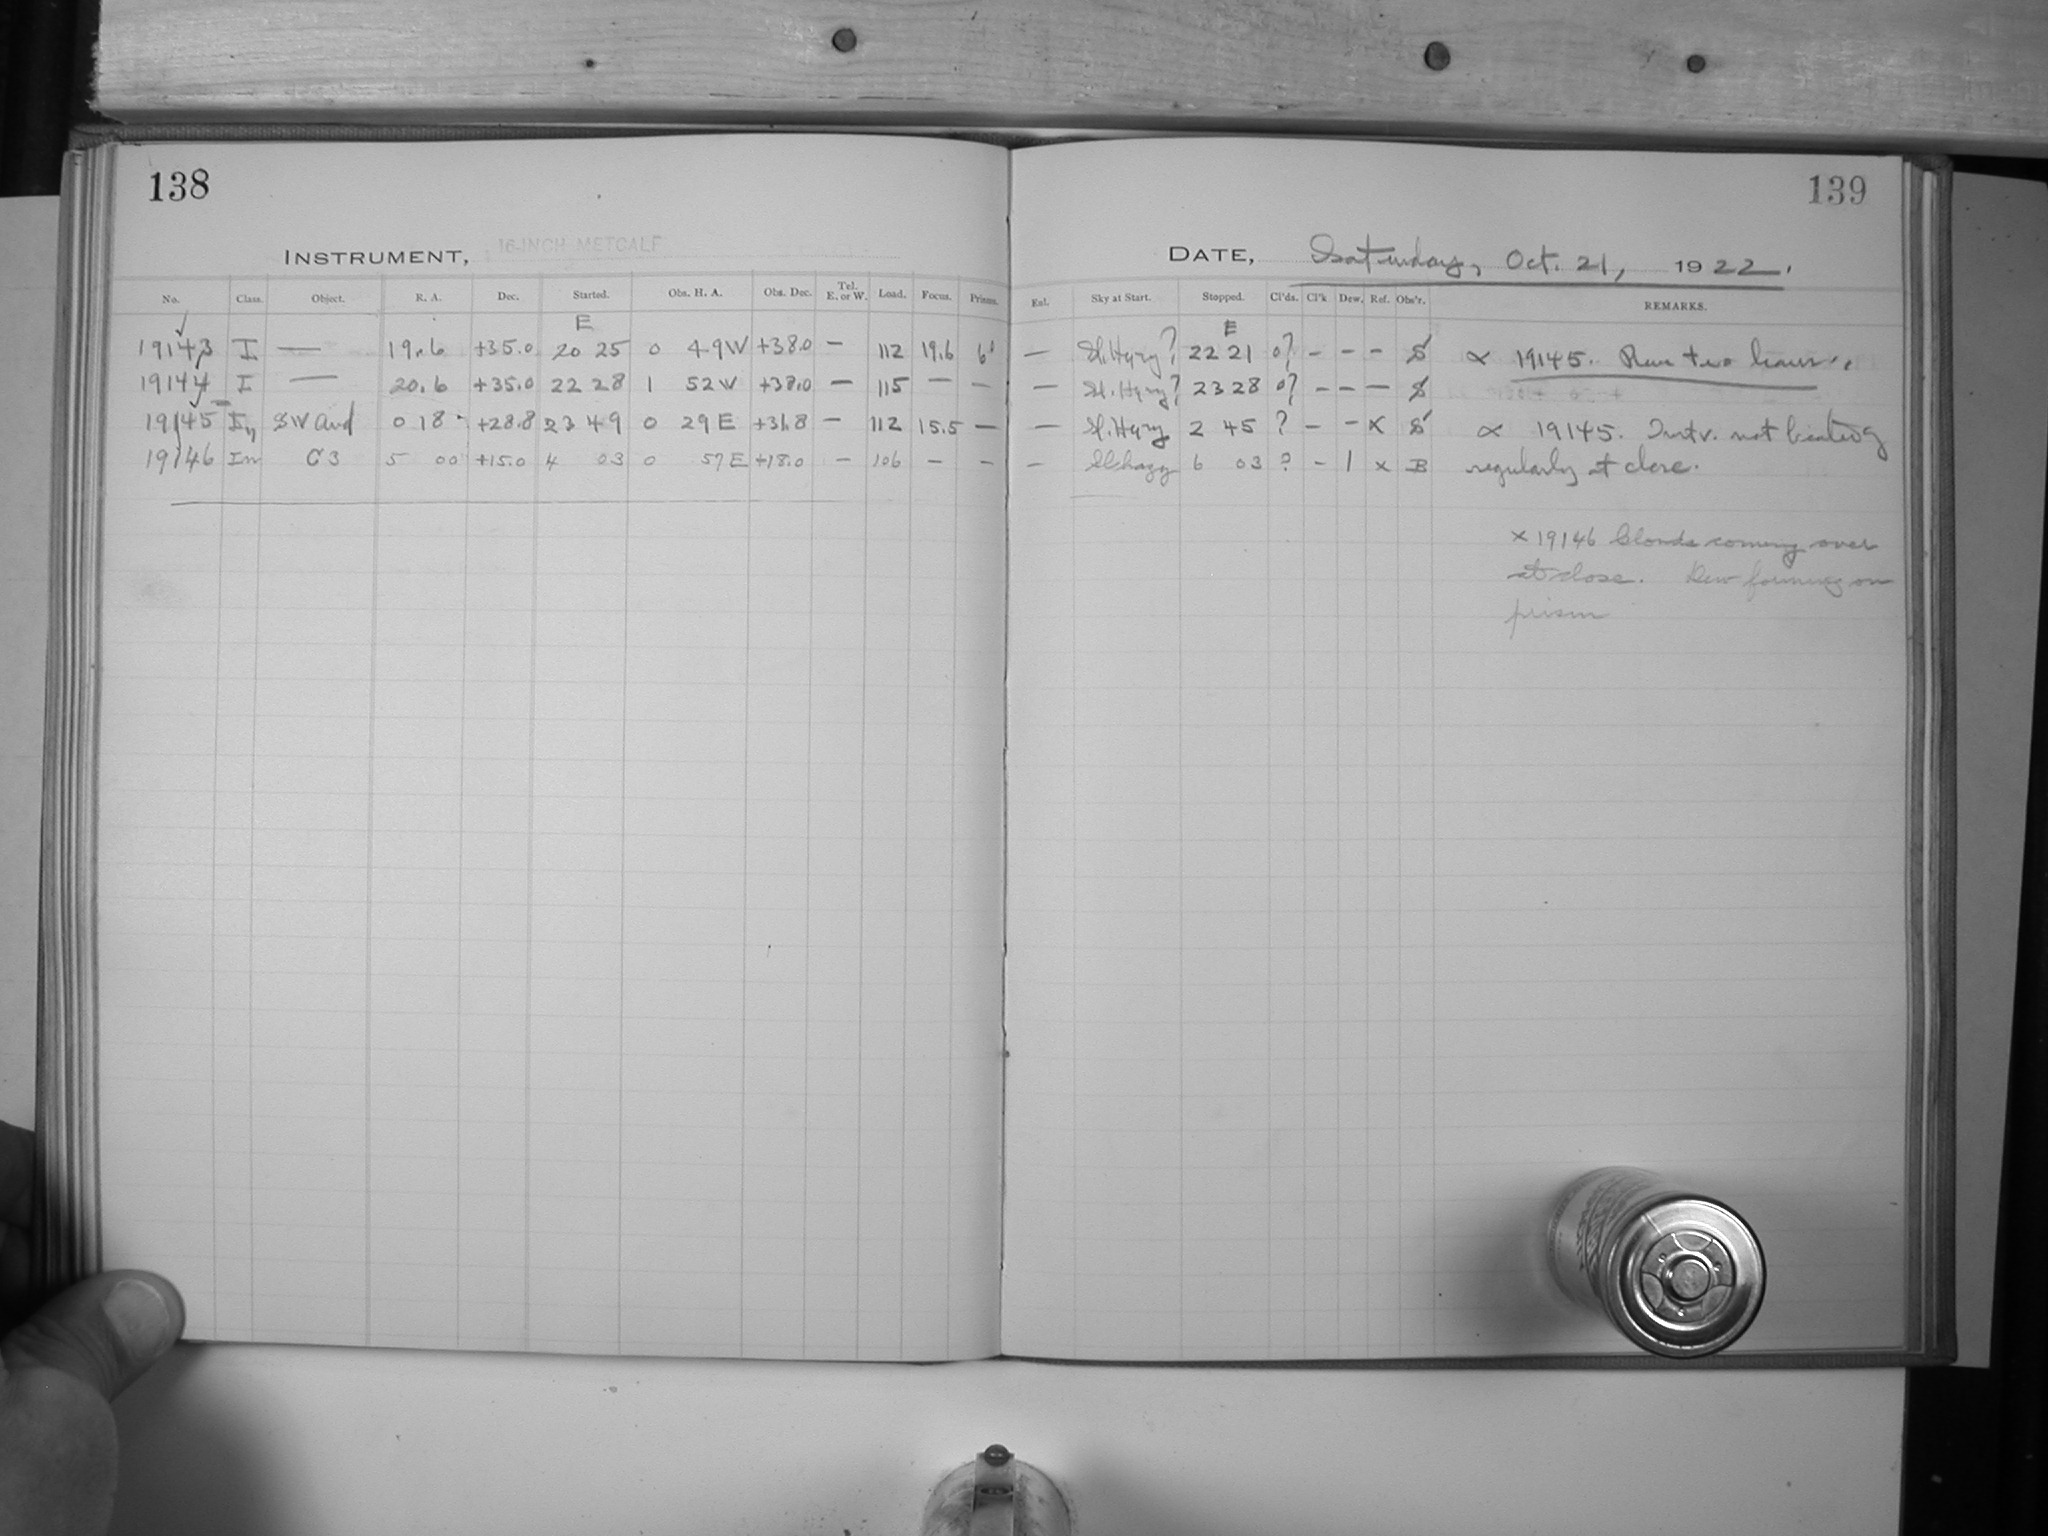 138
139
INSTRUMENT, 16-INCH METCALF
DATE, Saturday, Oct. 21, 1922.
No. Class. Object. R. A. Dec. Started. Obs. H. A. Obs. Dec. Tel. E. or W. Load. Focus. Prisms.
Ext. Sky at Start. Stopped. Cl'ds. Cl'k Dew. Ref. Obs'r. REMARKS.
E E
19143 I — 19.6 +35.0 20 25 0 49W +38.0 — 112 19.6 6' — Sl. Hazy? 22 21 0? - - - S ∝ 19145. Run two hours.
19144 I — 20.6 +35.0 22 28 1 52W +38.0 — 115 — — — Sl. Hazy? 23 28 0? - - — S
19145 SW And 0 18 +28.8 23 49 0 29 E +31.8 — 112 15.5 — — Sl. Hazy 2 45 ? - - X S ∝ 19145. not
19146 Im C3 5 00 +15.0 4 03 0 57 E +18.0 — 106 - - — Sl hazy 6 03 ? - 1 x B regularly at close.
x 19146 Clouds coming over
at close. Dew forming on
prism